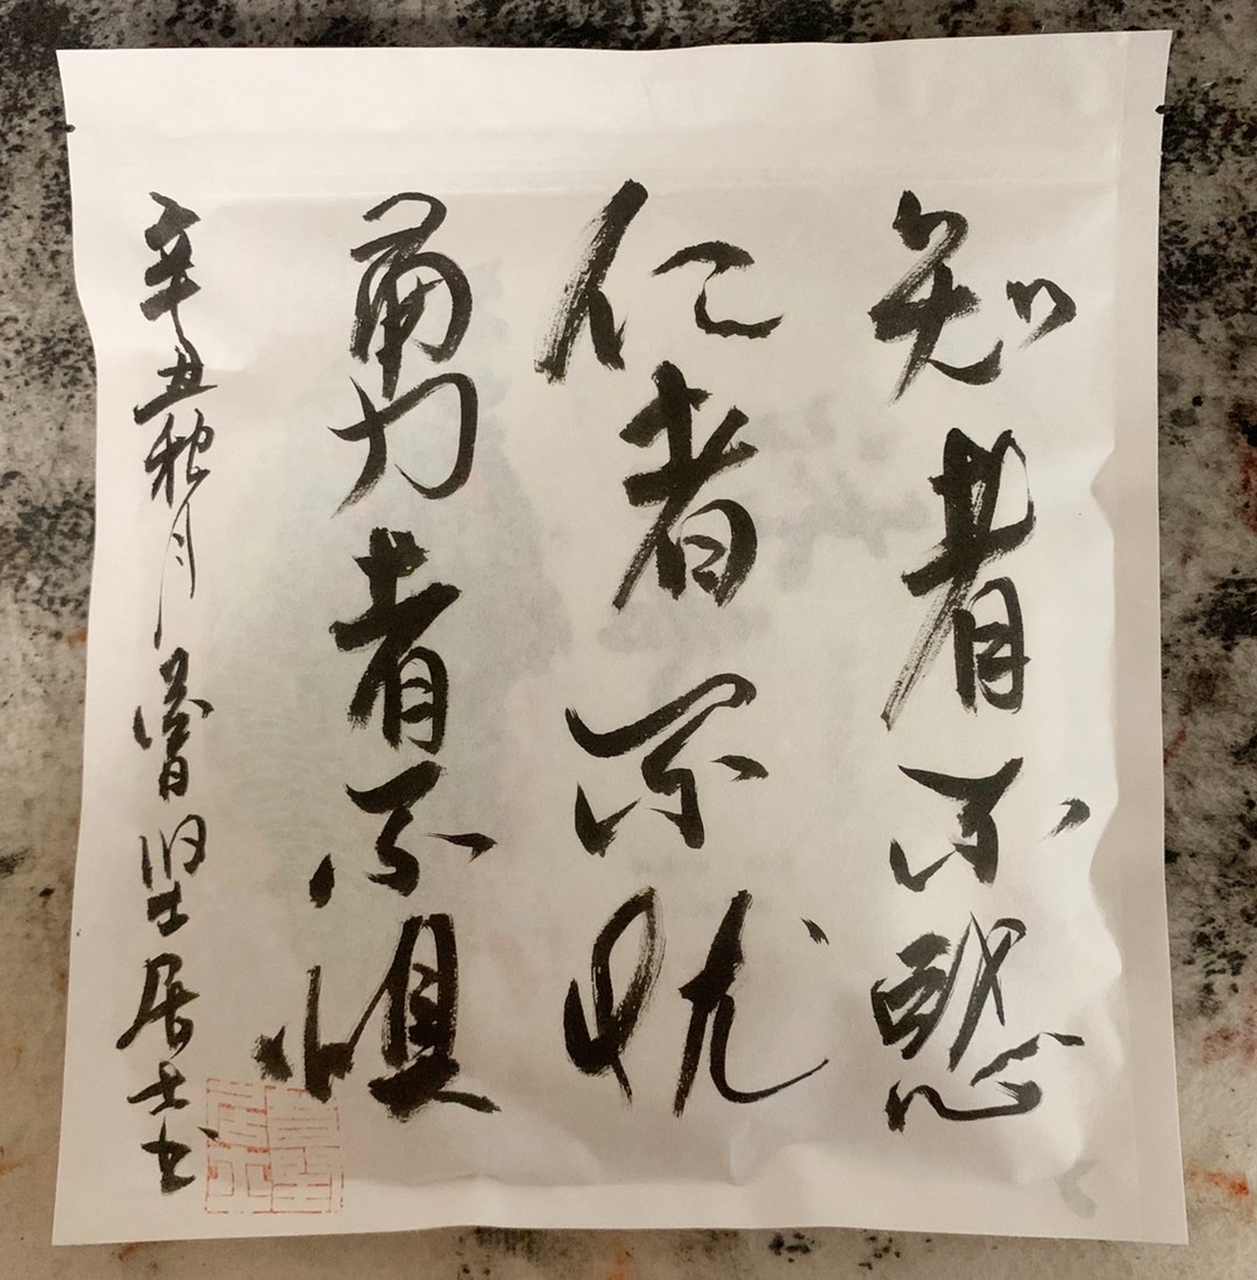 知者不惑
仁者不忧
勇者不惧
辛丑秋月 坚居士书